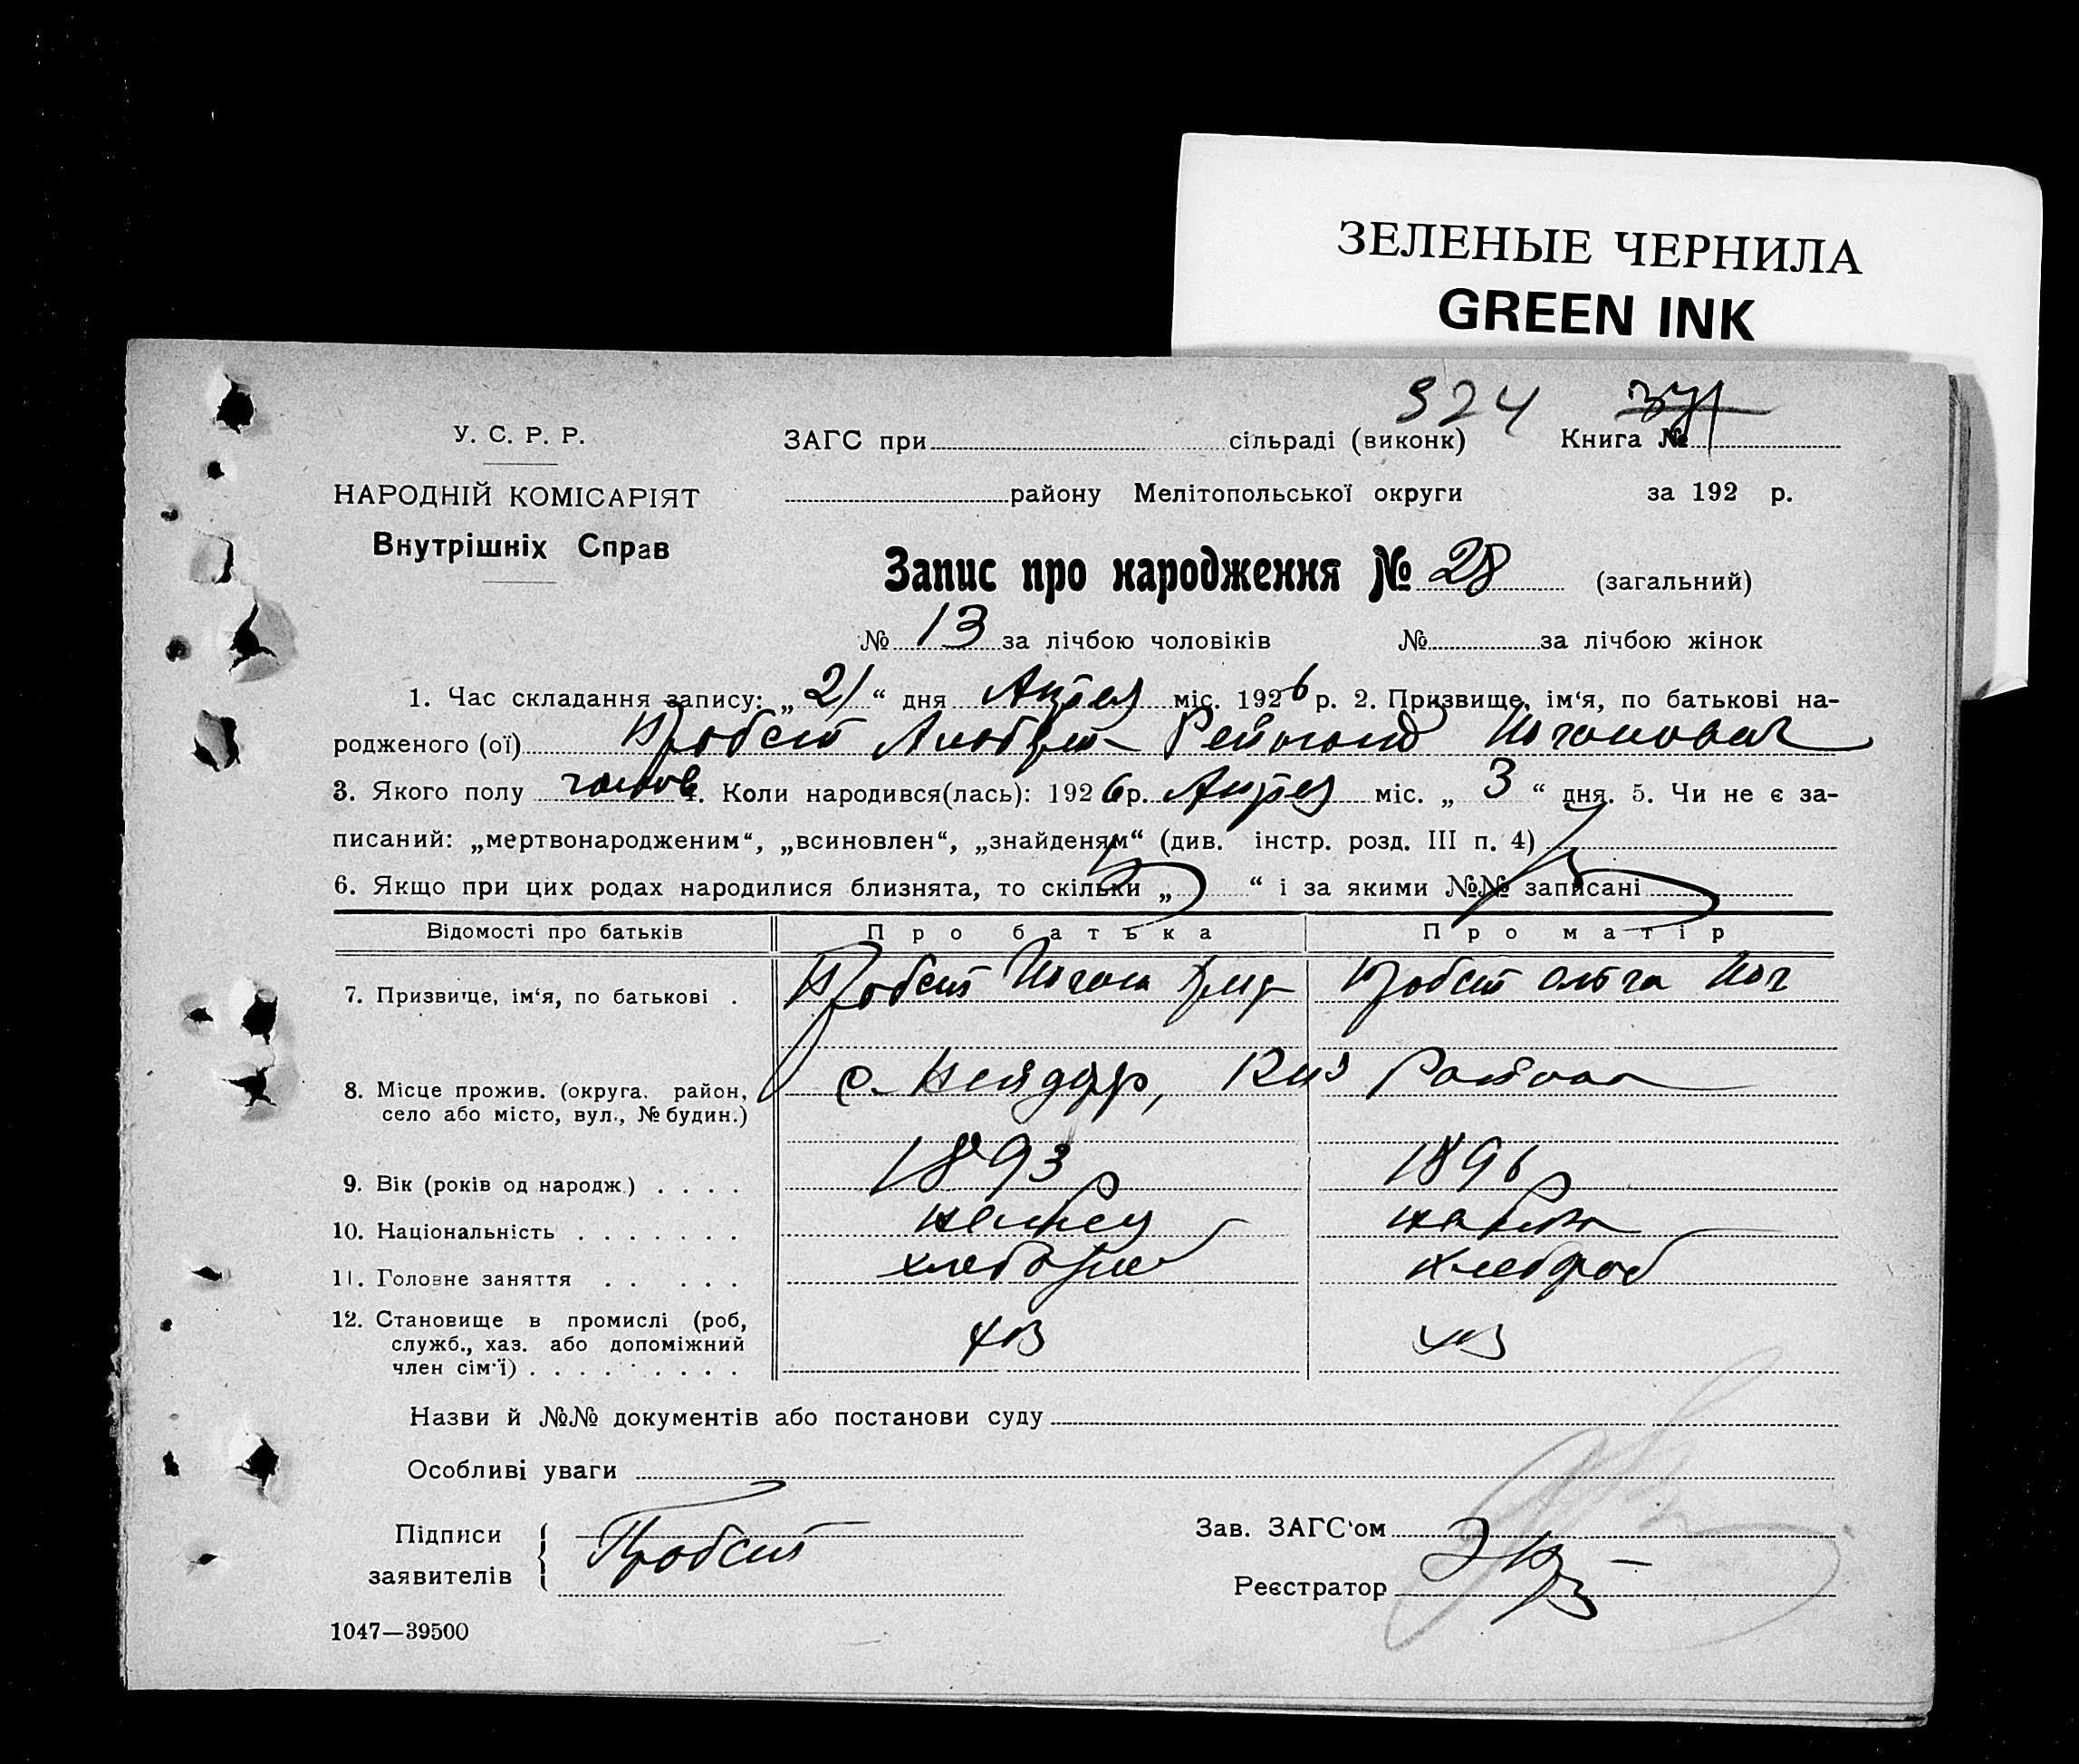 ЗЕЛЕНЫЕ ЧЕРНИЛА
GREEN INK
324 371
У. С. Р. Р. ЗАГС при сільраді (виконк) Книга №
НАРОДНІЙ КОМІСАРІЯТ району Мелітопольської округи за 192 р.
Внутрішніх Справ
Запис про народження № 28 (загальний)
№ 13 за лічбою чоловіків № за лічбою жінок
1. Час складання запису: „ 21 “ дня Апрел міс. 1926 р. 2. Призвище, ім‘я, по батькові на-
родженого (ої) Пробст Альберт Рейнольд Иоганович
3. Якого полу 4. Коли народився(лась): 1926 р. Апрел міс. „ 3 “ дня. 5. Чи не є за-
писаний: „мертвонародженим“, „всиновлен“, „знайденям“ (див. інстр. розд. III п. 4)
6. Якщо при цих родах народилися близнята, то скільки „ “ і за якими №№ записані
Відомості про батьків Про батька Про матір
7. Призвище, ім‘я, по батькові . Пробст Иоган Пробст Ольга Иог
8. Місце прожив. (округа. район, село або місто, вул., № будин.) с. Нейдорф, Района
9. Вік (років од народж.) . . . . 1893 1896
10. Національність . . . . . . . немец немка
11. Головне заняття . . . . . хлебороб хлебороб
12. Становище в промислі (роб, хоз хоз
служб., хаз. або допоміжний
член сім‘ї) . . . . . . . . .
Назви й №№ документів або постанови суду
Особливі уваги
Підписи заявителів Пробст
Зав. ЗАГС‘ом
Реєстратор
1047—39500